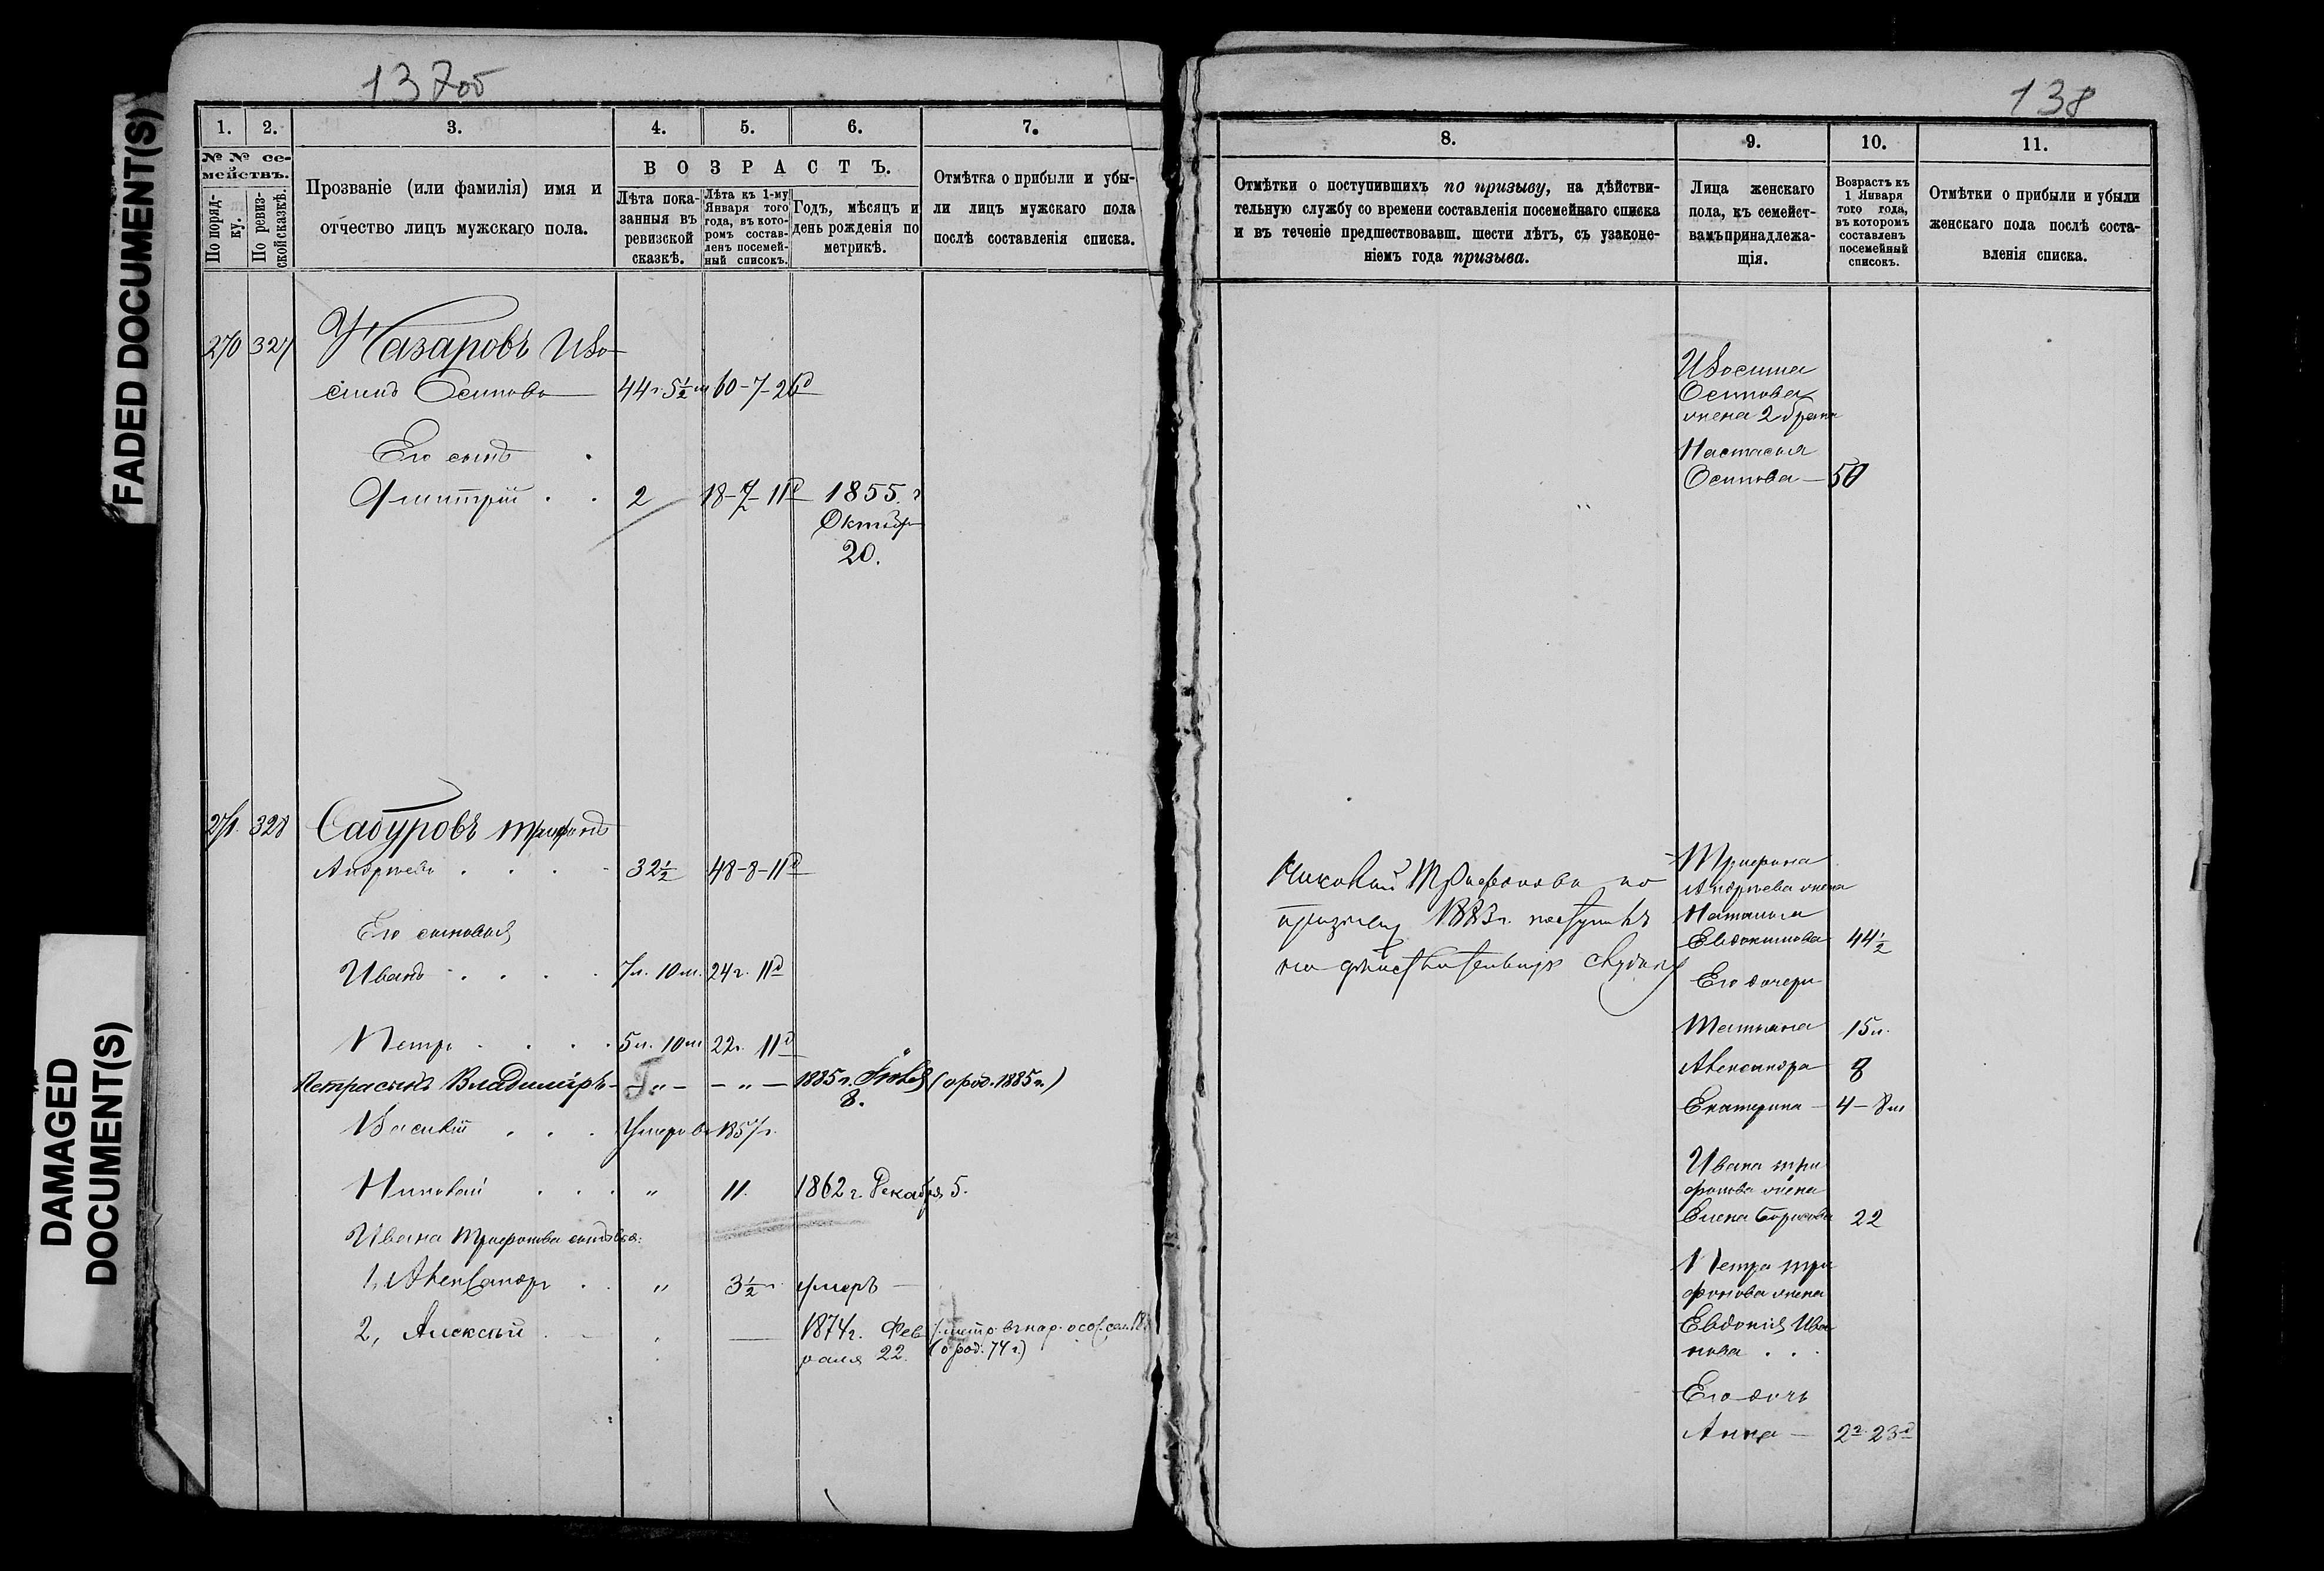 FADED DOCUMENT(S)
DAMAGED
DOCUMENT(S)
137об
1. 2. 3. 4. 5. 6. 7.
№ № се-
мействъ.
По поряд-
ку.
По ревиз-
ской сказкѣ.
Прозваніе (или фамилія) имя и
отчество лицъ мужскаго пола.
ВОЗРАСТЪ.
Лѣта пока-
занныя въ
ревизской
сказкѣ.
Лѣта къ 1-му
Января того
года, въ кото-
ромъ состав-
ленъ посемей-
ный списокъ.
Годъ, мѣсяцъ и
день рожденія по
метрикѣ.
Отмѣтка о прибыли и убы-
ли лицъ мужскаго пола
послѣ составленія списка.
270 327 Назаровъ Иво-
симъ Осиповъ 44 г. 5½ м 60-7-26д
Его сынъ
Дмитрій 2 18-2-11д 1855 г
Октябр
20.
271. 328 Сабуровъ Трифонъ
Андреевъ 32½ 48-8-11д
Его сыновья
Иванъ 7л. 10м. 24г. 11д
Петръ 5л. 10м 22г. 11д
Петра сынъ Владиміръ - " - - " - 1885г. Іюля (о род. 1885г.)
8.
Василій Умеръ въ 1857г.
Николай " 11. 1862г. Декабря 5.
Ивана Трифонова сыновья:
1, Александръ " 3½ г. умеръ
2, Алексѣй 1874г. Фев
раля 22.
(о род. 74г.)
138
8. 9. 10. 11.
Отмѣтки о поступившихъ по призыву, на дѣйстви-
тельную службу со времени составленія посемейнаго списка
и въ теченіе предшествовавш. шести лѣтъ, съ узаконе-
ніемъ года призыва.
Лица женскаго
пола, къ семейст-
вамъ принадлежа-
щія.
Возрастъ къ
1 Января
того года,
въ которомъ
составленъ
посемейный
списокъ.
Отмѣтки о прибыли и убыли
женскаго пола послѣ соста-
вленія списка.
Ивосима
Осипова
жена 2 брака
Настасья
Осипова 50
Николай Трифоновъ по
призыву 1883г. поступилъ
на дѣйствительную службу
Трифона
Андреева жена
Наталья
Евдокимова 44½
Его дочери
Татьяна 15л.
Александра 8
Екатерина 4-8м
Ивана Три
фонова жена
Елена Борисова 22
Петра Три
фонова жена
Евдокія Ива
нова
Его дочь
Анна 2г. 23д